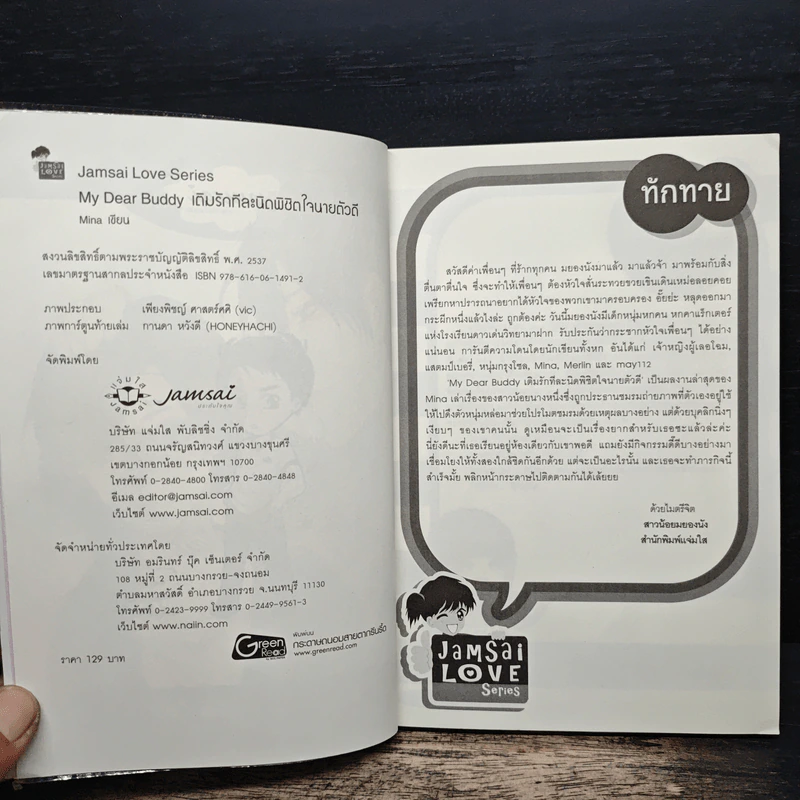 JAMSAI
LOVE
Jamsai Love Series
My Dear Buddy เติมรักทีละนิดพิชิตใจนายตัวดี
Mina เขียน
สงวนลิขสิทธิ์ตามพระราชบัญญัติลิขสิทธิ์ พ.ศ. 2537
เลขมาตรฐานสากลประจำหนังสือ ISBN 978-616-06-1491-2
ภาพประกอบ เพียงพิชญ์ ศาสตร์ศศิ (vic)
ภาพการ์ตูนท้ายเล่ม กานดา หวังดี (HONEYHACHI)
จัดพิมพ์โดย
แจ่มใส
Jamsai
Jamsai
บริษัท แจ่มใส พับลิชชิ่ง จำกัด
285/33 ถนนจรัญสนิทวงศ์ แขวงบางขุนศรี
เขตบางกอกน้อย กรุงเทพฯ 10700
โทรศัพท์ 0-2840-4800 โทรสาร 0-2840-4848
อีเมล editor@jamsai.com
เว็บไซต์ www.jamsai.com
จัดจำหน่ายทั่วประเทศโดย
บริษัท อมรินทร์ บุ๊ค เซ็นเตอร์ จำกัด
108 หมู่ที่ 2 ถนนบางกรวย-จงถนอม
ตำบลมหาสวัสดิ์ อำเภอบางกรวย จ.นนทบุรี 11130
โทรศัพท์ 0-2423-9999 โทรสาร 0-2449-9561-3
เว็บไซต์ www.naiin.com
ราคา 129 บาท
Green
Read
พิมพ์บน
กระดาษถนอมสายตากรีนรี้ด
www.greenread.com
ทักทาย
สวัสดีค่าเพื่อนๆ ที่ร้ากทุกคน มยองนังมาแล้ว มาแล้วจ้า มาพร้อมกับสิ่ง
ตื่นตาตื่นใจ ซึ่งจะทำให้เพื่อนๆ ต้องหัวใจสั่นระทวยขวยเขินเดินเหม่อลอยคอย
เพรียกหาปรารถนาอยากได้หัวใจของพวกเขามาครอบครอง อั๊ยย่ะ หลุดออกมา
กระผีกหนึ่งแล้วไงล่ะ ถูกต้องค่ะ วันนี้มยองนังมีเด็กหนุ่มหกคน หกคาแร็กเตอร์
แห่งโรงเรียนดาวเด่นวิทยามาฝาก รับประกันว่ากระชากหัวใจเพื่อนๆ ได้อย่าง
แน่นอน การันตีความโดนโดยนักเขียนทั้งหก อันได้แก่ เจ้าหญิงผู้เลอโฉม,
แสตมป์เบอรี่, หนุ่มกรุงโซล, Mina, Merlin และ may112
'My Dear Buddy เติมรักทีละนิดพิชิตใจนายตัวดี' เป็นผลงานล่าสุดของ
Mina เล่าเรื่องของสาวน้อยนางหนึ่งซึ่งถูกประธานชมรมถ่ายภาพที่ตัวเองอยู่ใช้
ให้ไปดึงตัวหนุ่มหล่อมาช่วยโปรโมตชมรมด้วยเหตุผลบางอย่าง แต่ด้วยบุคลิกนิ่งๆ
เงียบๆ ของเขาคนนั้น ดูเหมือนจะเป็นเรื่องยากสำหรับเธอซะแล้วล่ะค่ะ
นี่ยังดีนะที่เธอเรียนอยู่ห้องเดียวกับเขาพอดี แถมยังมีกิจกรรมดี๊ดีบางอย่างมา
เชื่อมโยงให้ทั้งสองใกล้ชิดกันอีกด้วย แต่จะเป็นอะไรนั้น และเธอจะทำภารกิจนี้
สำเร็จมั้ย พลิกหน้ากระดาษไปติดตามกันได้เล้ยยย
ด้วยไมตรีจิต
สาวน้อยมยองนัง
สำนักพิมพ์แจ่มใส
JAMSAI
LOVE
Series